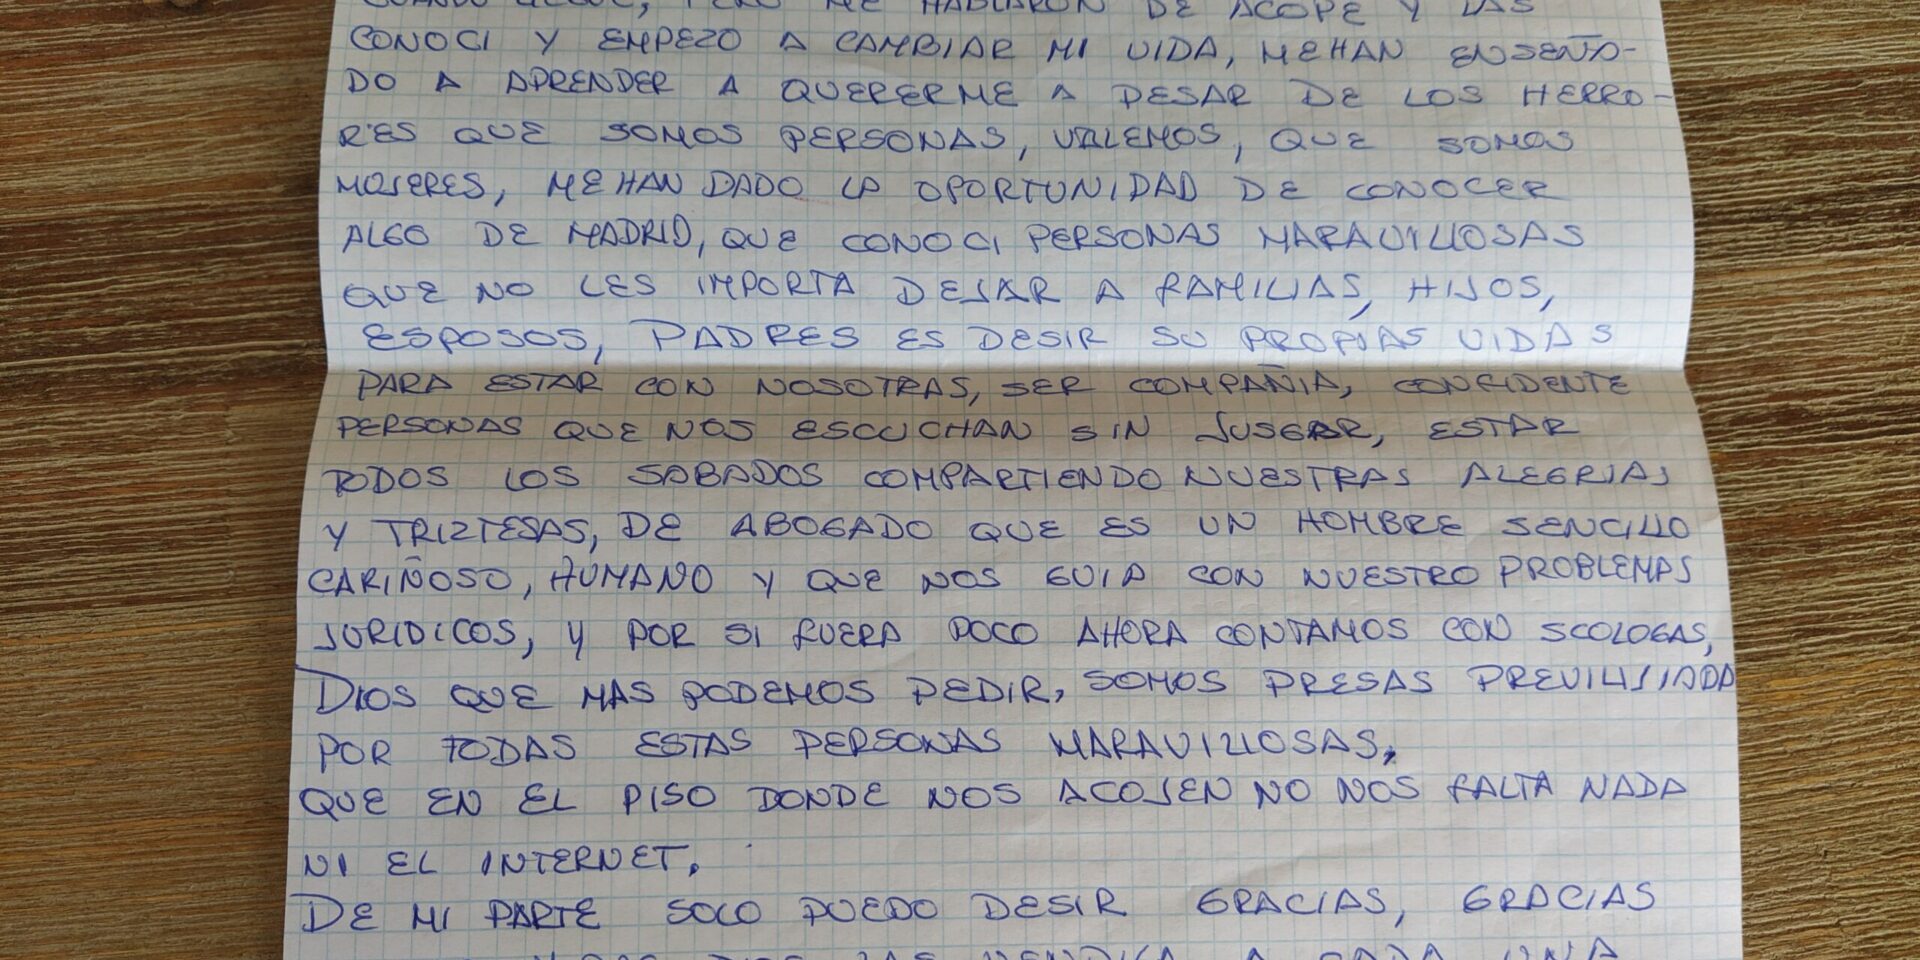 CUANDO LLEGUE, PERO ME HABLARON DE ACOPE Y LAS
CONOCI Y EMPEZO A CAMBIAR MI VIDA, ME HAN ENSEÑA-
DO A APRENDER A QUERERME A PESAR DE LOS HERRO-
RES QUE SOMOS PERSONAS, VALEMOS, QUE SOMOS
MUJERES, ME HAN DADO LA OPORTUNIDAD DE CONOCER
ALGO DE MADRID, QUE CONOCI PERSONAS MARAVILLOSAS
QUE NO LES IMPORTA DEJAR A FAMILIAS, HIJOS,
ESPOSOS, PADRES ES DESIR SU PROPIAS VIDAS
PARA ESTAR CON NOSOTRAS, SER COMPAÑIA, CONFIDENTE
PERSONAS QUE NOS ESCUCHAN SIN JUSGAR, ESTAR
TODOS LOS SABADOS COMPARTIENDO NUESTRAS ALEGRIAS
Y TRIZTESAS, DE ABOGADO QUE ES UN HOMBRE SENCILLO
CARIÑOSO, HUMANO Y QUE NOS GUIA CON NUESTRO PROBLEMAS
JURIDICOS, Y POR SI FUERA POCO AHORA CONTAMOS CON SCOLOGAS,
DIOS QUE MAS PODEMOS PEDIR, SOMOS PRESAS PREVILIJIADA
POR TODAS ESTAS PERSONAS MARAVILLOSAS,
QUE EN EL PISO DONDE NOS ACOJEN NO NOS FALTA NADA
NI EL INTERNET.
DE MI PARTE SOLO PUEDO DESIR GRACIAS, GRACIAS
DIOS LAS BENDIGA A CADA UNA